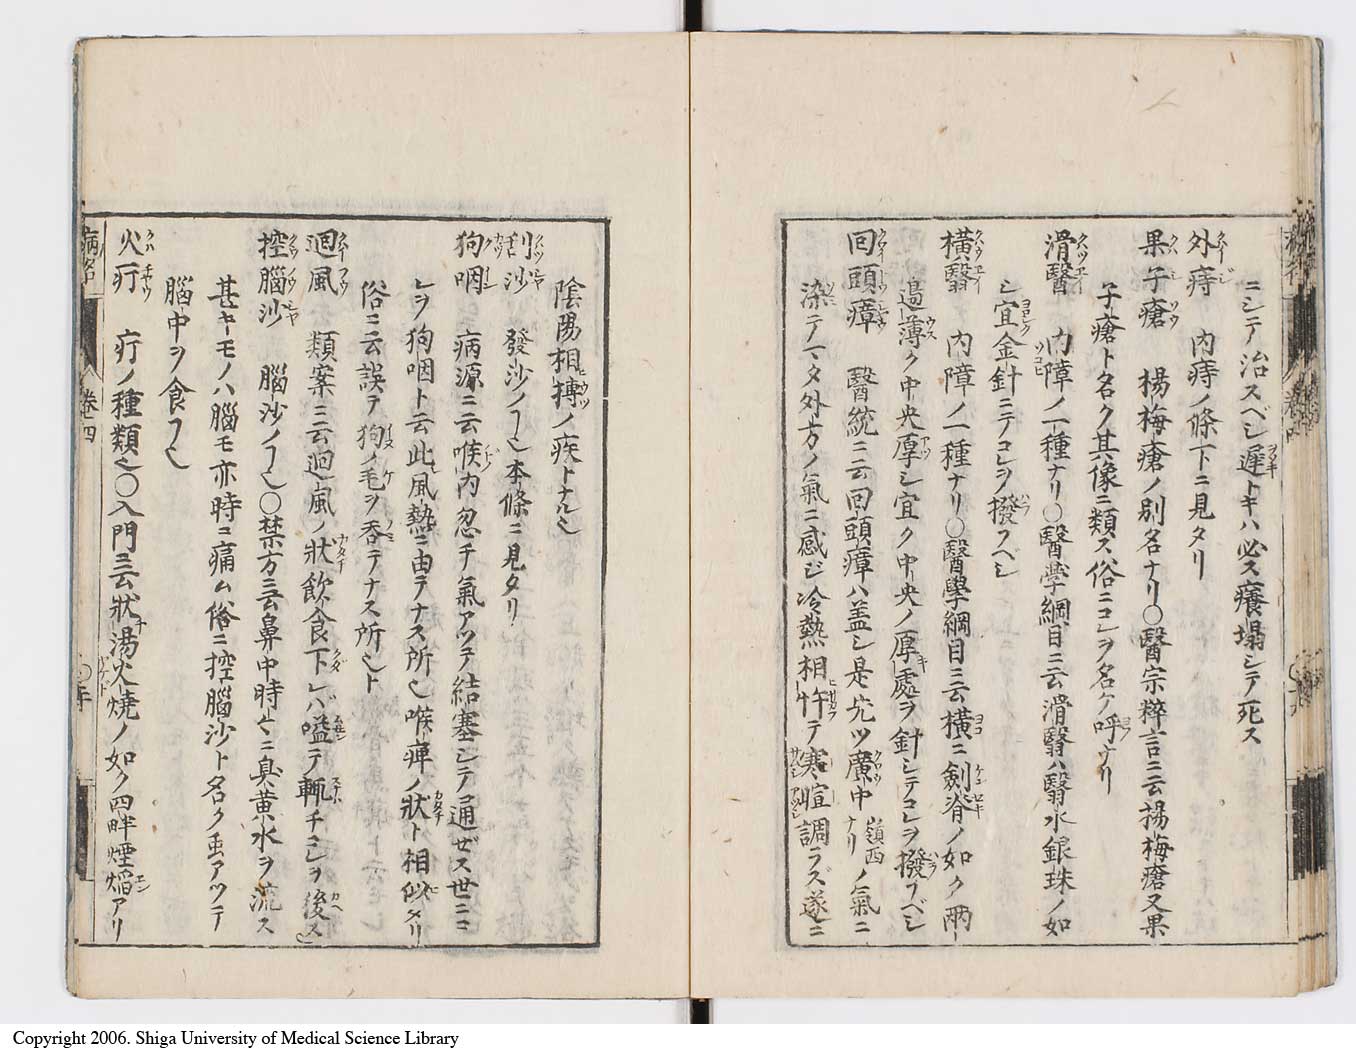 ニシテ治スベシ遅トキハ必ス癢塌シテ死ス
外痔 内痔ノ條下ニ見タリ
果子瘡 楊梅瘡ノ別名ナリ○醫宗粹言ニ云楊梅瘡又果
子瘡ト名ク其像ニ類ス俗ニコレヲ名ケ呼ナリ
滑翳 内障ノ一種ナリ○醫学綱目ニ云滑翳ハ翳水銀珠ノ如
シ宜金針ニテコレヲ撥フベシ
橫翳 内障ノ一種ナリ○醫學綱目ニ云橫ニ劍脊ノ如ク兩
邉薄ク中央厚シ宜ク中央ノ厚處ヲ針シテコレヲ撥フベシ
回頭瘴 醫統ニ云回頭瘴ハ盖シ是先ツ廣中嶺西ナリノ氣ニ
染テマタ外方ノ氣ニ感ジ冷熱相忤テ寒暄調ラズ遂ニ
陰陽相搏ノ疾トナル也
刮沙 發沙ノ
本條ニ見タリ
狗咽 病源ニ云喉内忽チ氣アツテ結塞シテ通ゼス世ニコ
レヲ狗咽ト云此風熱ニ由テナス所也喉痺ノ狀ト相似タリ
俗ニ云誤ヲ狗ノ毛ヲ呑テナス所也ト
迴風 類案ニ云迴風ノ狀飲食下レバ嗌テ輒チコレヲ後ス
控腦沙 腦沙ノ
○禁方ニ云鼻中時々ニ臭黄水ヲ流ス
甚キモノハ腦モ亦時ニ痛ム俗ニ控腦沙ト名ク虫アツテ
腦中ヲ食フ也
火疔 疔ノ種類也○入門ニ云狀湯火燒ノ如ク四畔煙焰アリ
病名
卷七四